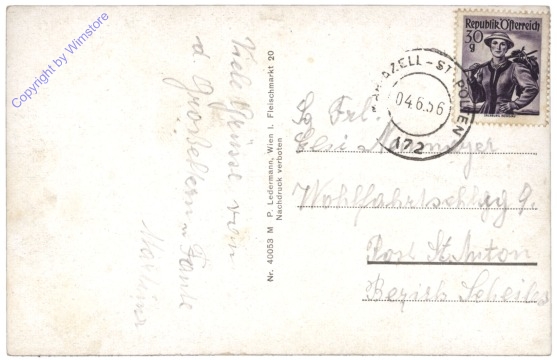 Copyright by Wimstore
Viele Grüsse von
d. Großeltern u. Tante
Nr. 40053 M P. Ledermann, Wien I. Fleischmarkt 20
Nachdruck verboten
Republik Österreich
30
g
MARIAZELL – ST. PÖLTEN
04.6.56
172
Frl.
Post St. Anton
Bezirk Scheibbs